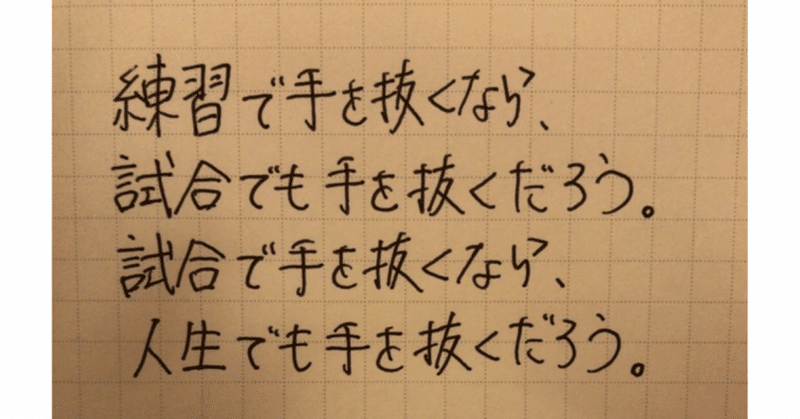 練習で手を抜くなら、
試合でも手を抜くだろう。
試合で手を抜くなら、
人生でも手を抜くだろう。